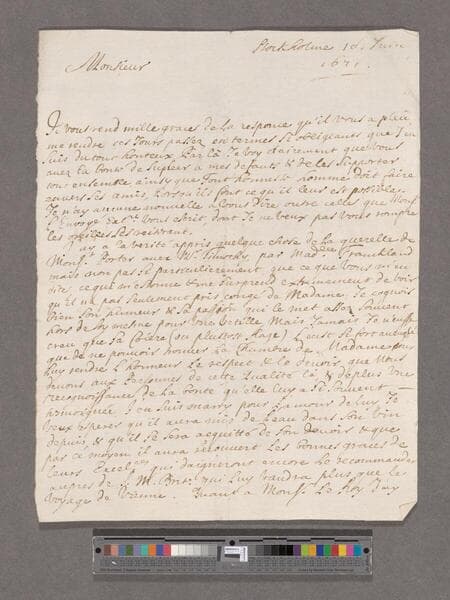 Stockholme 10. Juin
1671.
Monsieur
Je vous rend mille graces de la responce qu'il vous a pleu
me rendre ces Jours passez en termes si obligeants que J'en
suis du tout honteux Par là Je voy clairement que vous
avez la bonté de supleer a mes defauts & de les supporter
tous ensemble ainsi que tout honneste homme doit faire
envers ses amis, lors qu'ils font ce qu'il leur est possible.
Je n'ay aucune nouvelle a vous dire outre celles que Monsr
l'Envoyé Exc. vous escrit, dont Je ne veux pas vous rompre
les oreilles
J'ay a la verité appris quelque chose de la querelle de
Monsr. Porter avec Mr. par Madlle Frankland
mais non pas si particulierement que ce que vous m'en
dite, ce qui m'estonne & me surprend extremement de voir
qu'il n'a pas seulement pris congé de Madame. Je cognois
bien son humeur & sa passion qui le met assez souvent
hors de soy mesme pour une vetille, Mais Jamais Je n'eusse
creu que sa Colere (ou plustost Rage) l'eust si fort aveuglé
que de ne pouvoir trouver la Chambre de Madame pour
luy rendre l'honneur le respect & le devoir, que nous
devons aux Personnes de cette Qualité là, & de plus une
recognoissance de la bonté qu'elle luy a si souvent
temoignée. J'en suis marry pour l'amour de luy Je
veux esperer qu'il aura mis de l'eau dans son Vin
depuis, & qu'il se sera acquitté de son devoir & que
par ce moyen il aura retrouvé les bonnes graces de
leurs Excelces qui daigneront encore le recommander
aupres de S. M. qui luy vaudra plus que le
Voyage de Vienne. Quant a Monsr. Le Roy J'ay